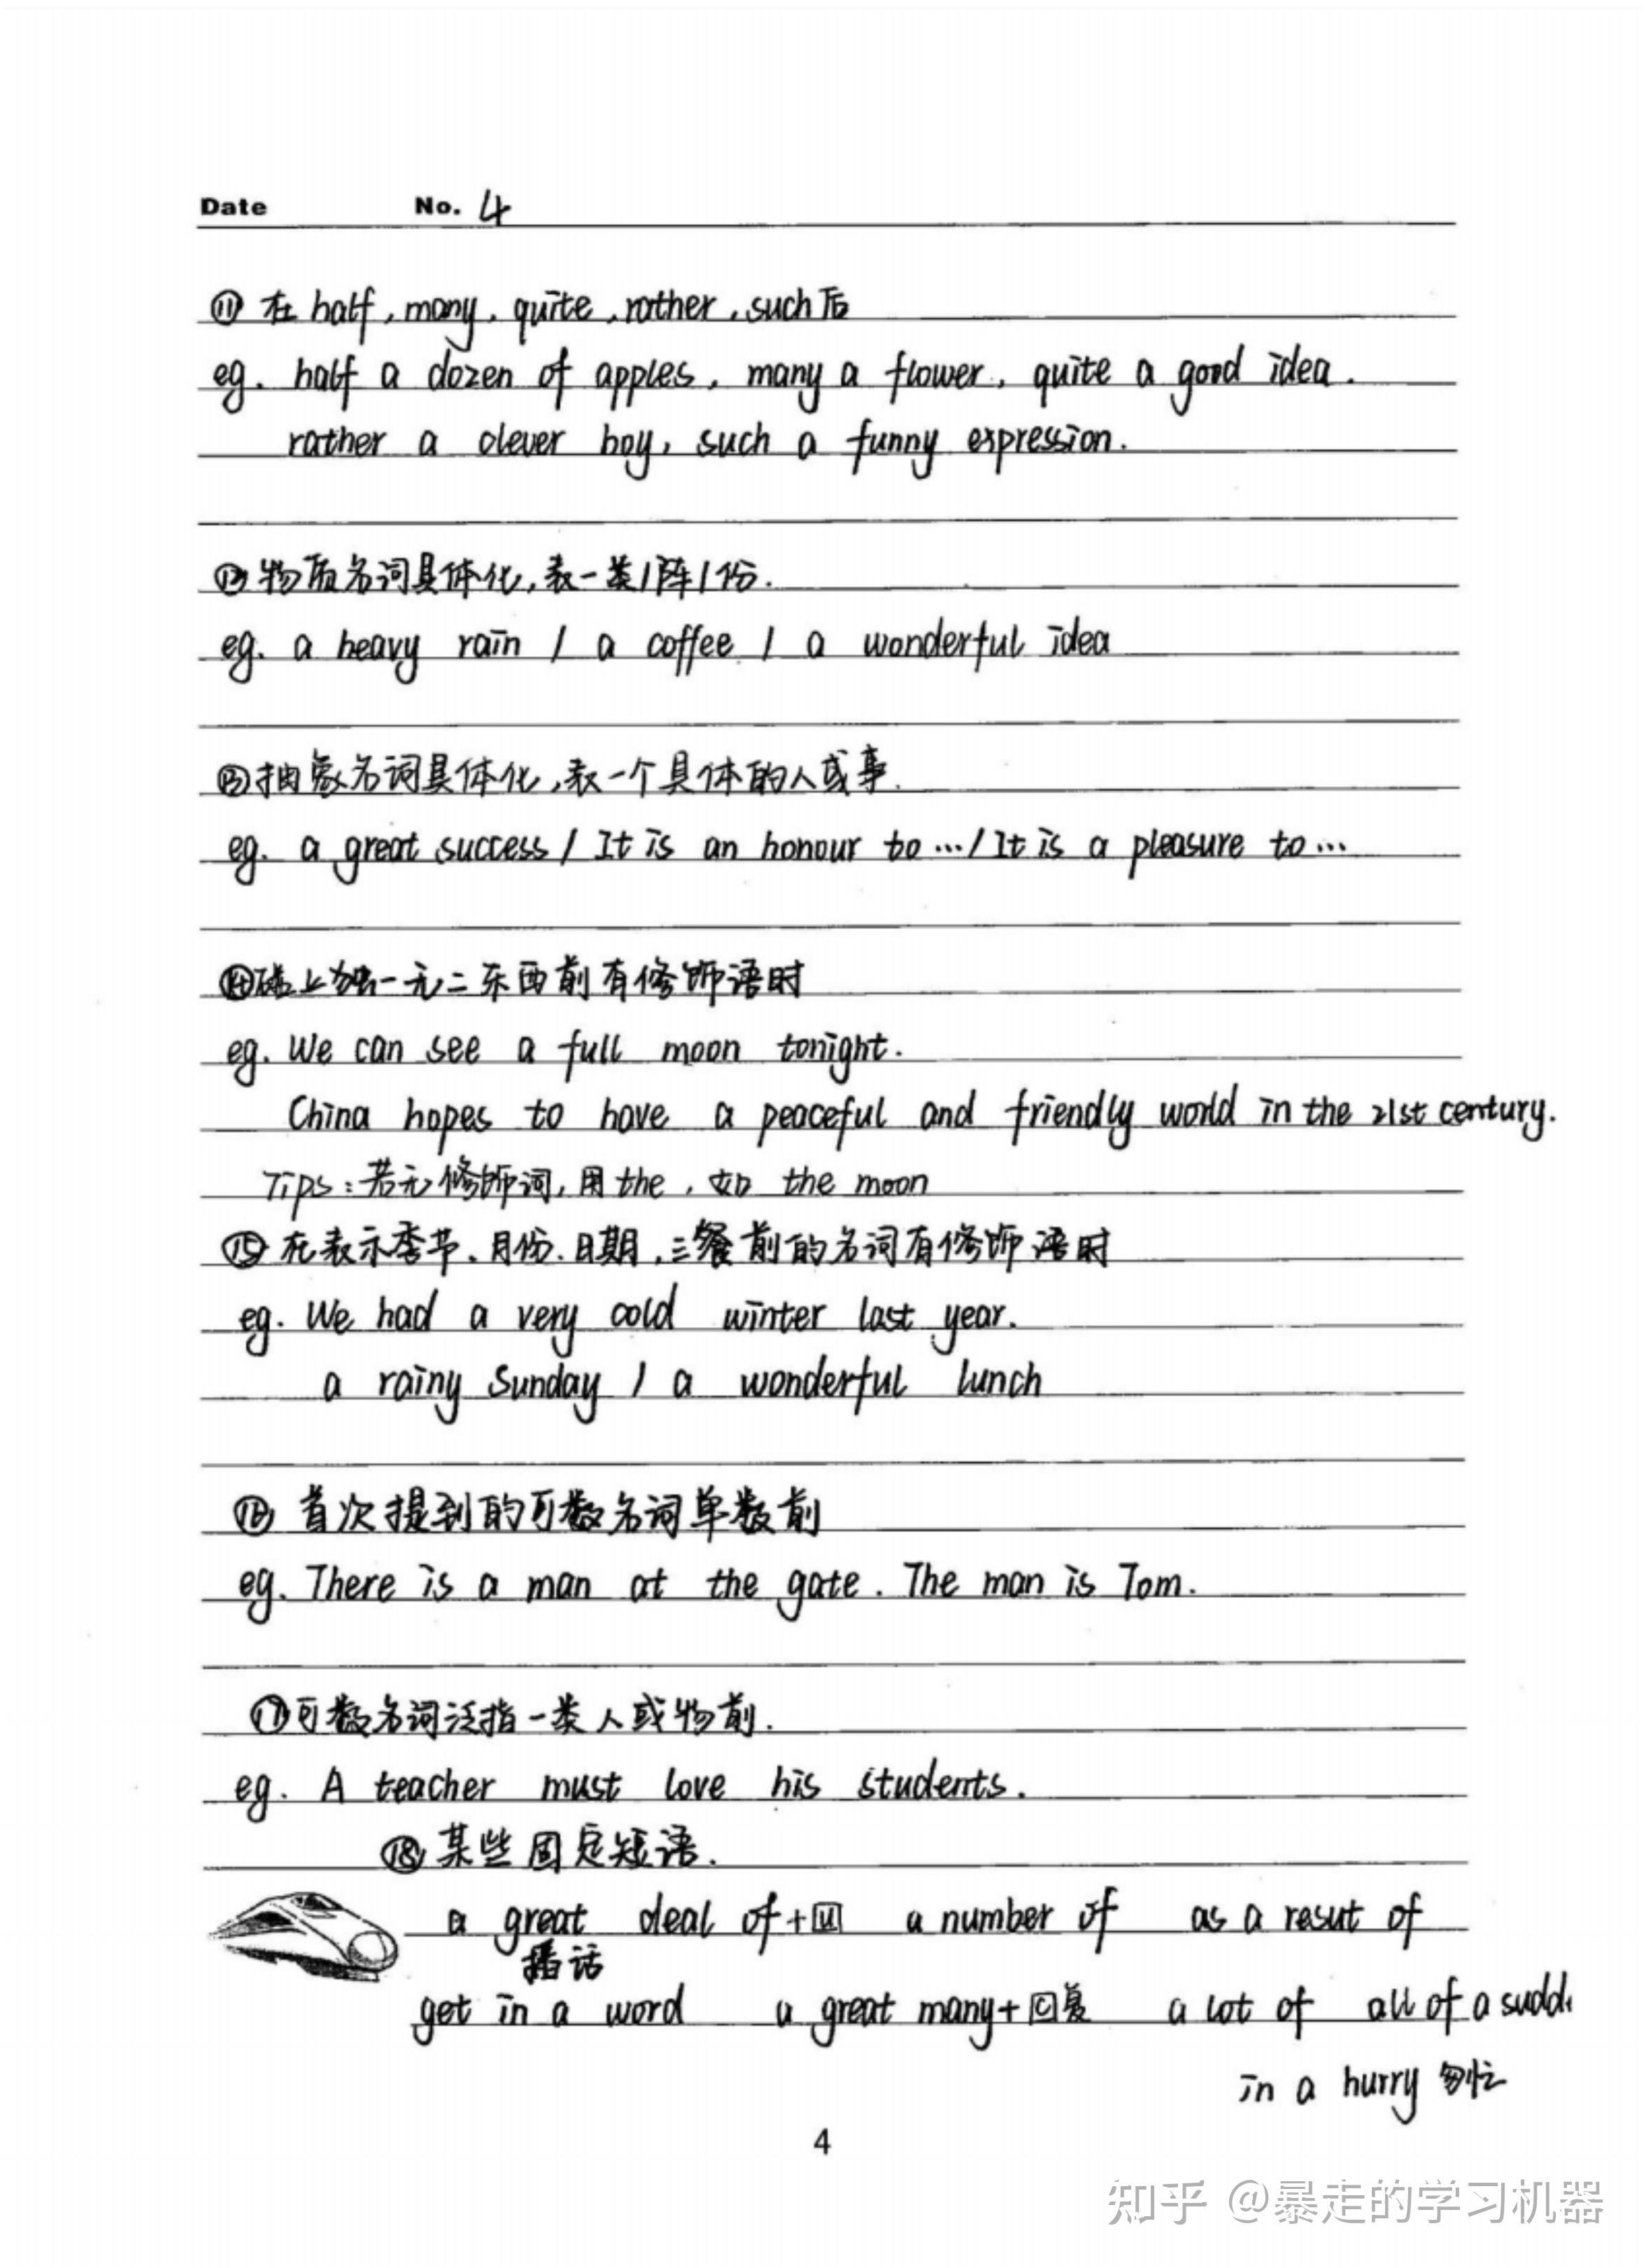 Date No. 4
⑪ 在 half, many, quite, rather, such后
eg. half a dozen of apples, many a flower, quite a good idea.
rather a clever boy, such a funny expression.
⑫物质名词具体化,表一类/阵/份.
eg. a heavy rain / a coffee / a wonderful idea
⑬抽象名词具体化,表一个具体的人或事.
eg. a great success / It is an honour to … / It is a pleasure to …
⑭世上独一无二东西前有修饰语时
eg. We can see a full moon tonight.
China hopes to have a peaceful and friendly world in the 21st century.
Tips:若无修饰词,用the,如 the moon
⑮在表示季节、月份.日期,三餐前的名词有修饰语时
eg. We had a very cold winter last year.
a rainy Sunday / a wonderful lunch
⑯ 首次提到的可数名词单数前
eg. There is a man at the gate. The man is Tom.
⑰可数名词泛指一类人或物前.
eg. A teacher must love his students.
⑱某些固定短语.
a great deal of + U a number of as a resut of
播话
get in a word a great many + C复 a lot of all of a sudd
in a hurry 匆忙
4
知乎 @暴走的学习机器